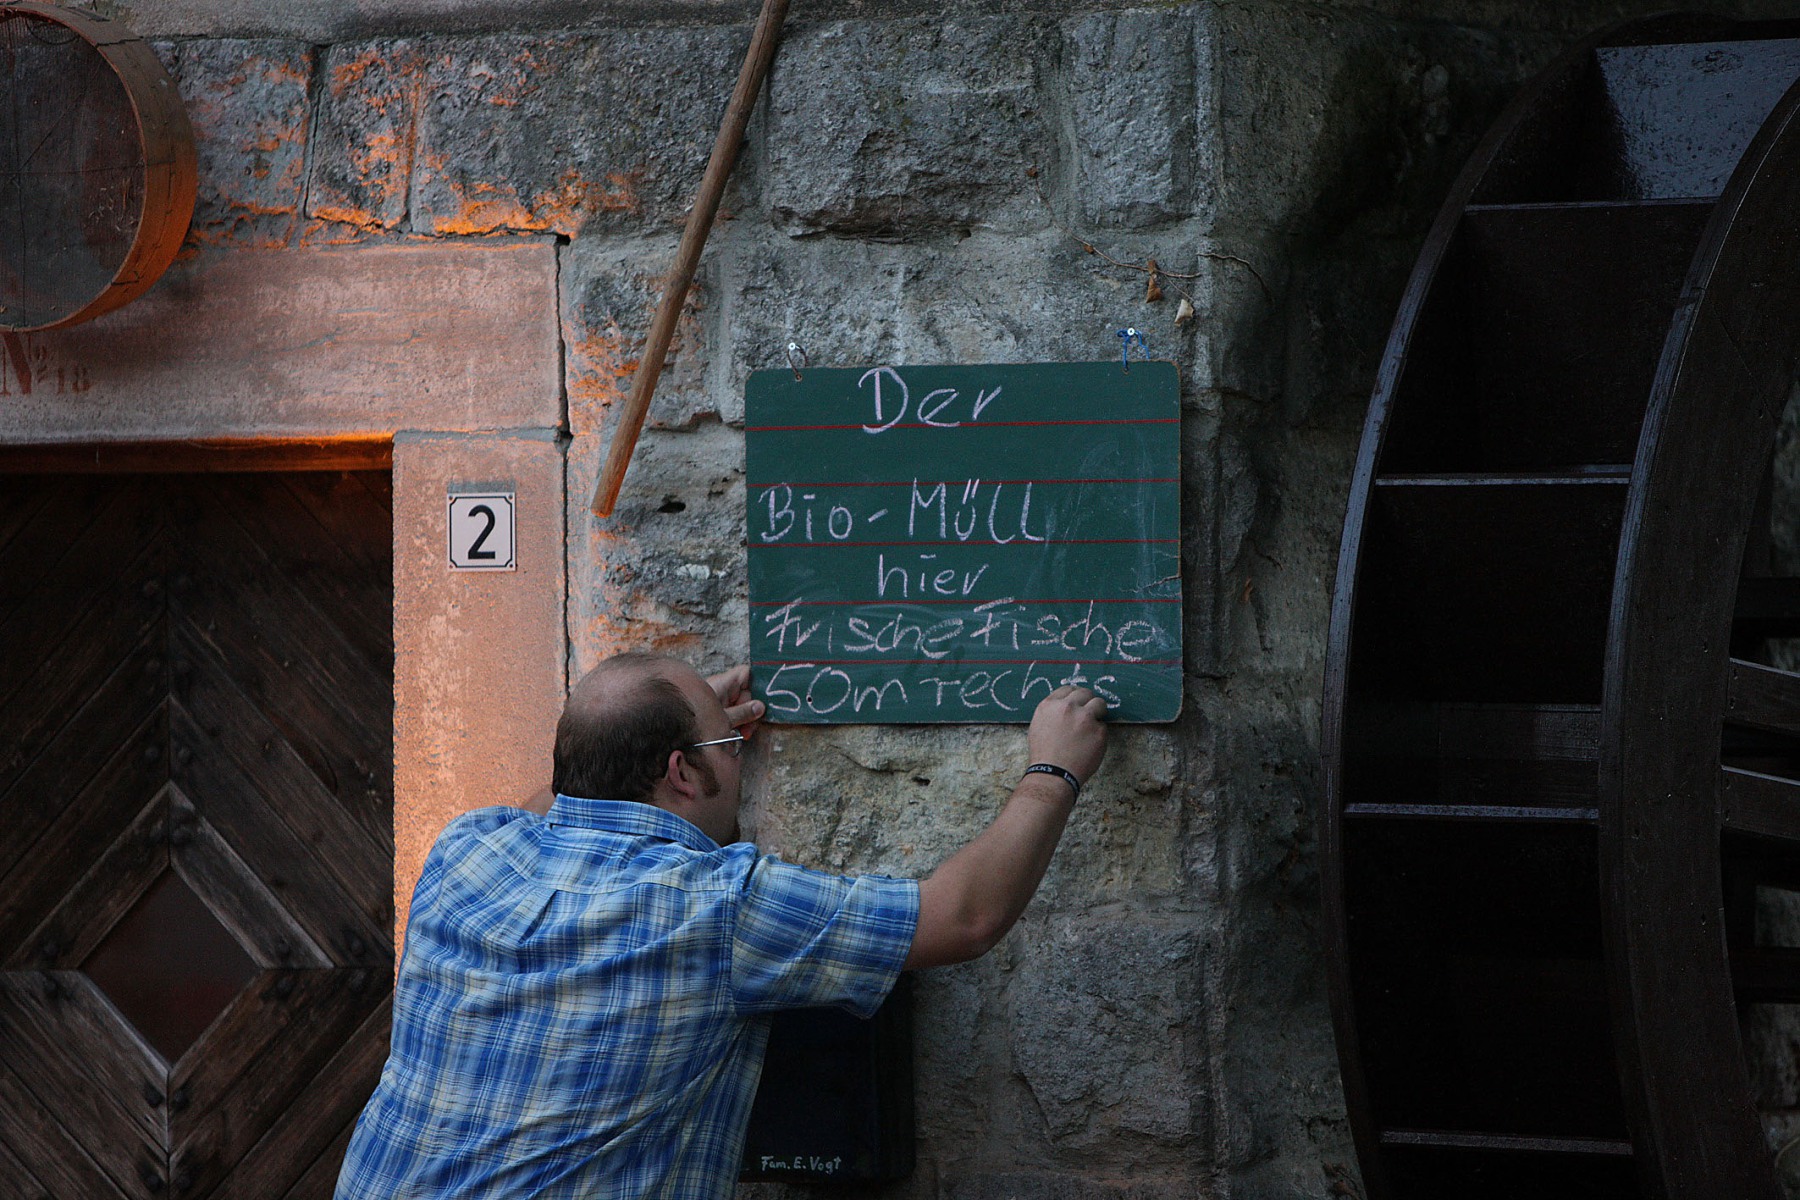 No 18
2
Der
Bio-Müll
hier
Frische Fische
50m rechts
Fam. E. Vogt